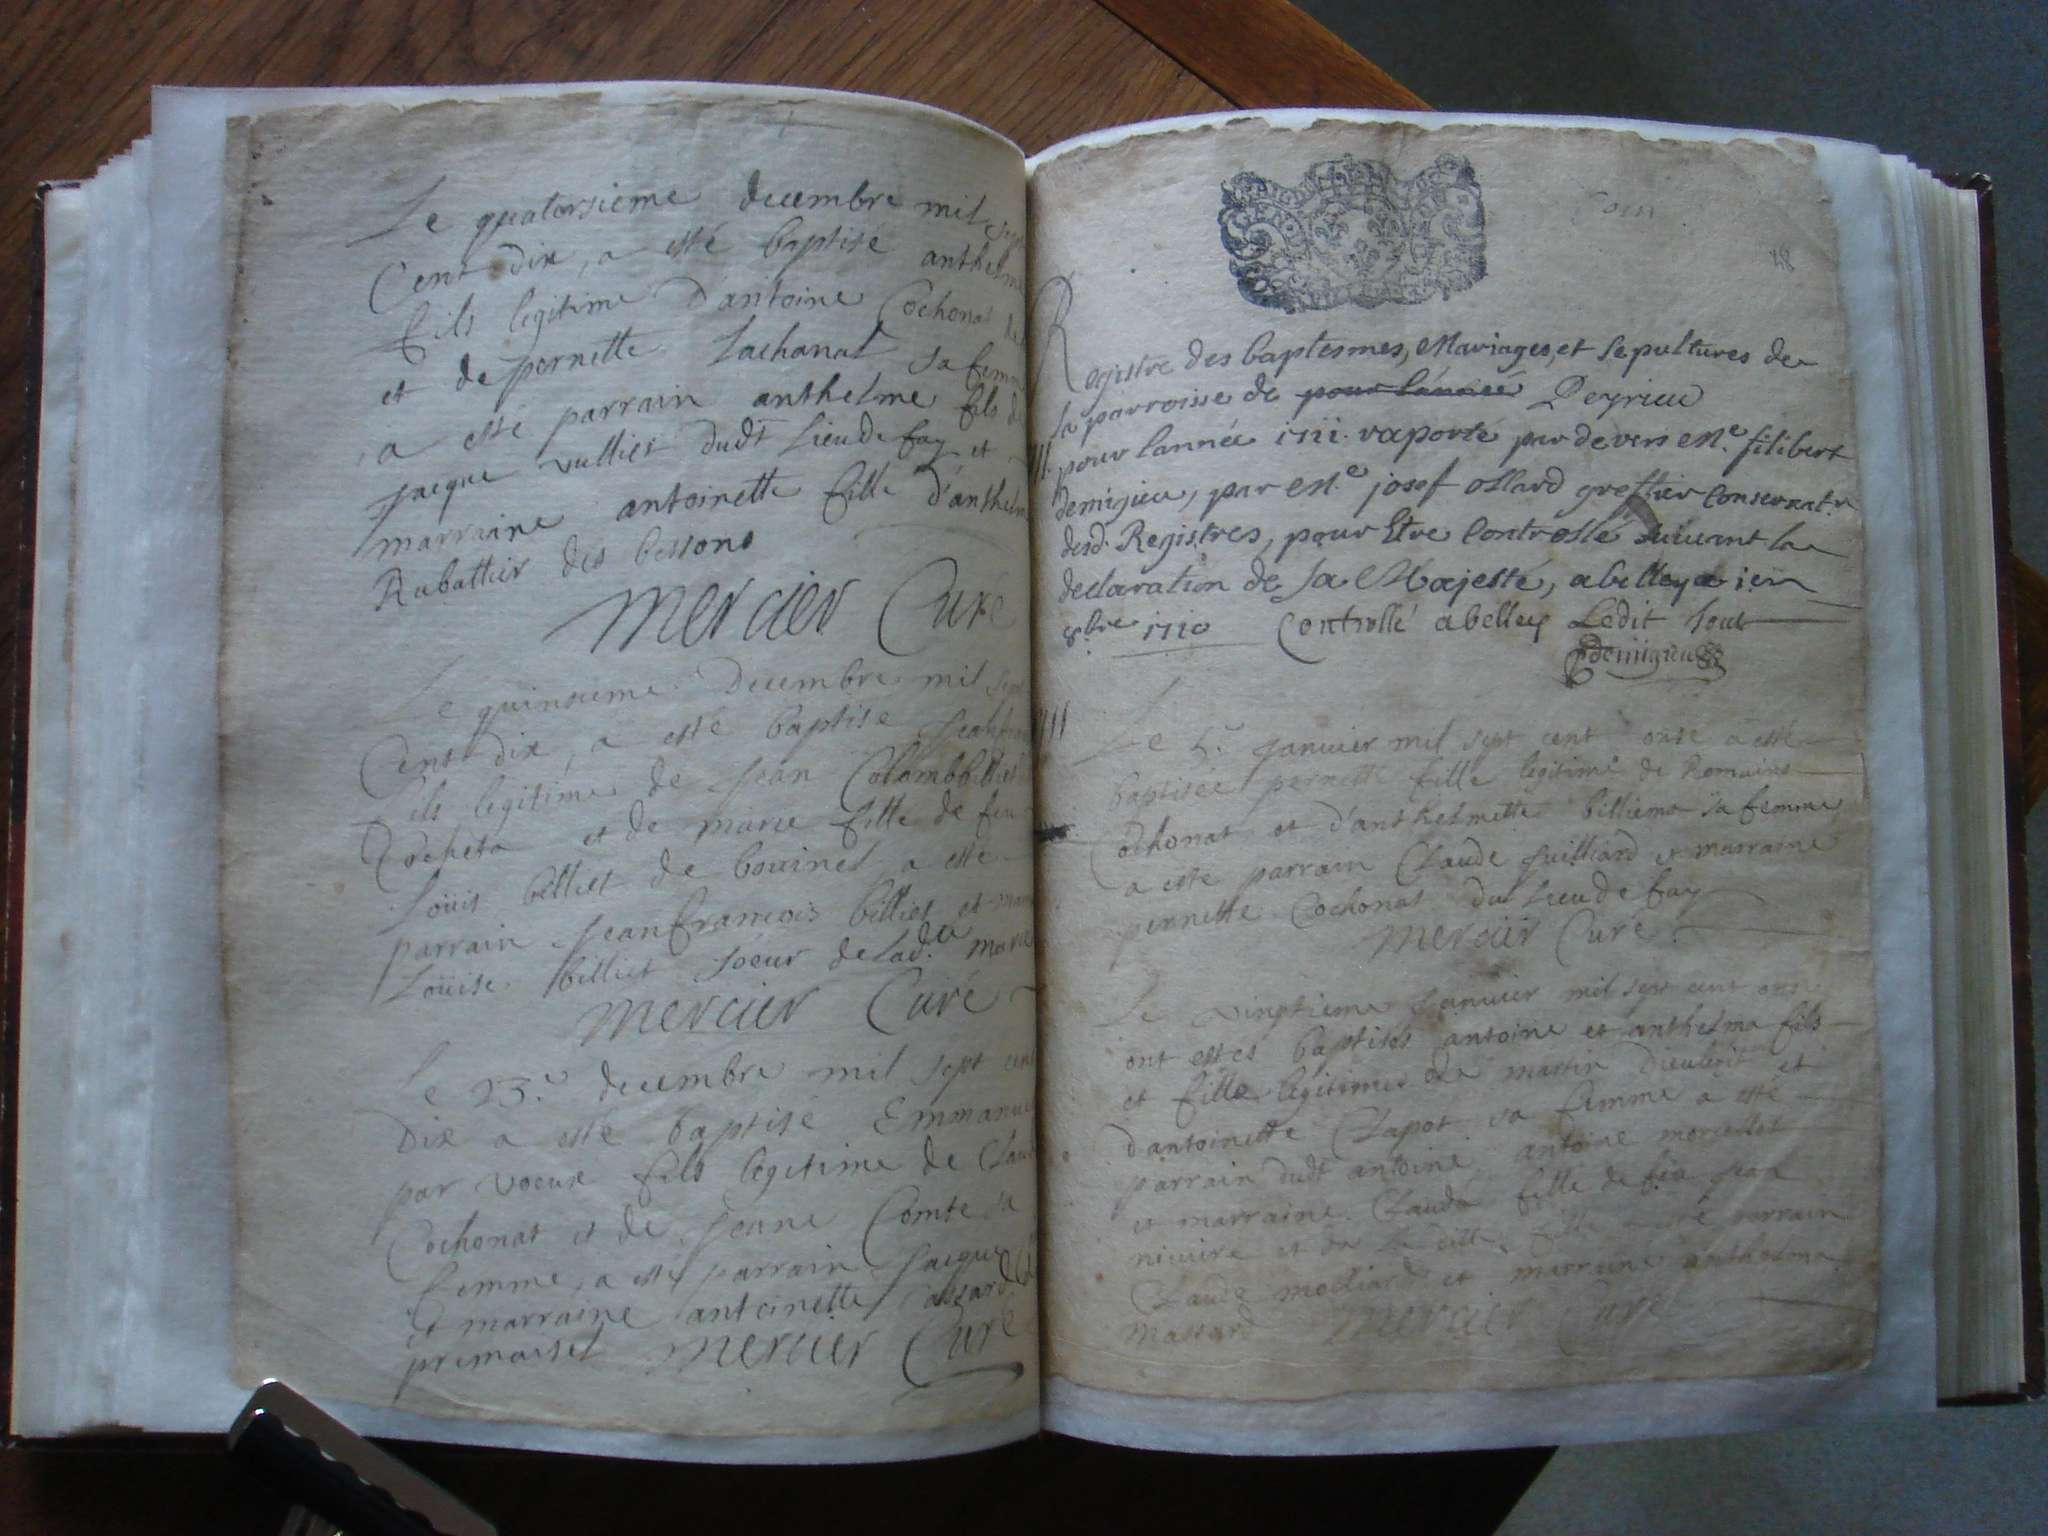 Le quatorsieme decembre mil sept
Cent dix, a esté baptisé anthelme
fils legitime D'antoine Cochonat
et de pernette Lachanal sa femme
a esté parrain anthelme fils de
jacque vulliet dudt Lieu de fay et
marraine antoinette fille d'anthelme
Rubattier des bessons
mercier Curé
Le quinsieme Decembre mil sept
Cent dix, a esté baptisé jeanfran
fils legitime de jean Colombbilliet
Cocheta et de marie fille de feu
Loüis billiet de bovinel a esté
parrain jeanfrancois billiet et mar
Loüise billiet soeur de lad.te marie
mercier Curé
le 23.e decembre mil sept cent
Dix a esté baptisé Emmanuel
par voeux fils legitime de Claude
Cochonat et de jeanne Comte sa
femme, a esté parrain jacque
et marraine antoinette assard
premaisel mercier Curé
48
Registre des baptesmes, Mariages, et sepultures de
la parroisse de pour l'année Peyrieu
pour lannée 1711. raporté par devers Me. filibert
demigieu, par Me. josef ollard greffier Conservat.r
desd. Registres, pour Etre Controllé suivant la
declaration de sa Majesté, abelley ce ier
8bre 1710 Controllé abelley Ledit Jour
demigieu
Le 5.e janvier mil sept cent onse a esté
baptisée pernette fille legitime de Romains
Cochonat et d'anthelmette billiema sa femme
a esté parrain Claude juilliard et marraine
pernette Cochonat du Lieu de fay
mercier Curé
Le vingtieme janvier mil sept cent ons
ont estés baptisés antoine et anthelma fils
et fille legitimes de martin Dieulefit et
d'antoinette Chapot sa femme a esté
parrain dudt antoine, antoine morcellet
et marraine Clauda fille de feu jean
niviere et de la ditte fille a esté parrain
Claude mochard et marraine anthelma
massard mercier Curé